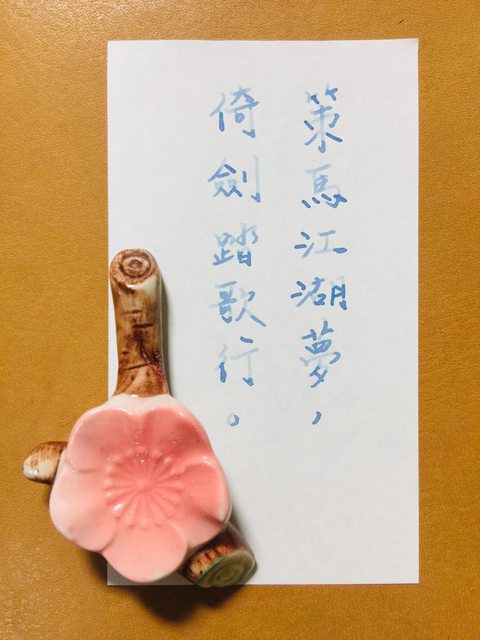 策馬江湖夢，
倚劍踏歌行。